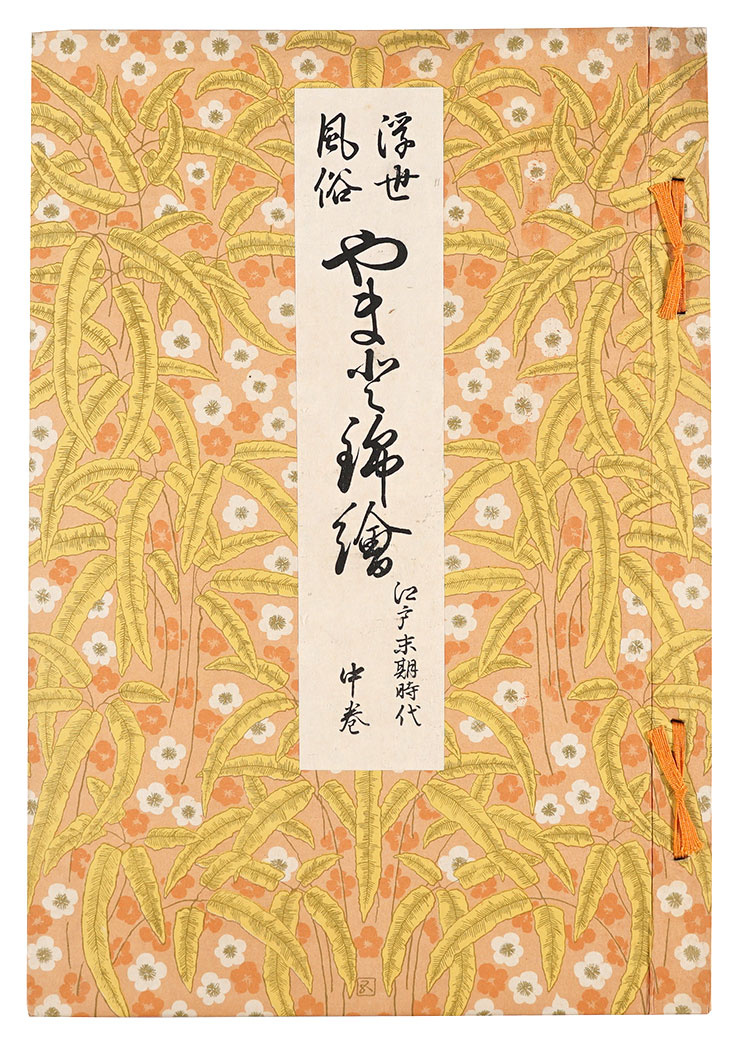 浮世
風俗
やまと錦繪
江戸末期時代
中巻